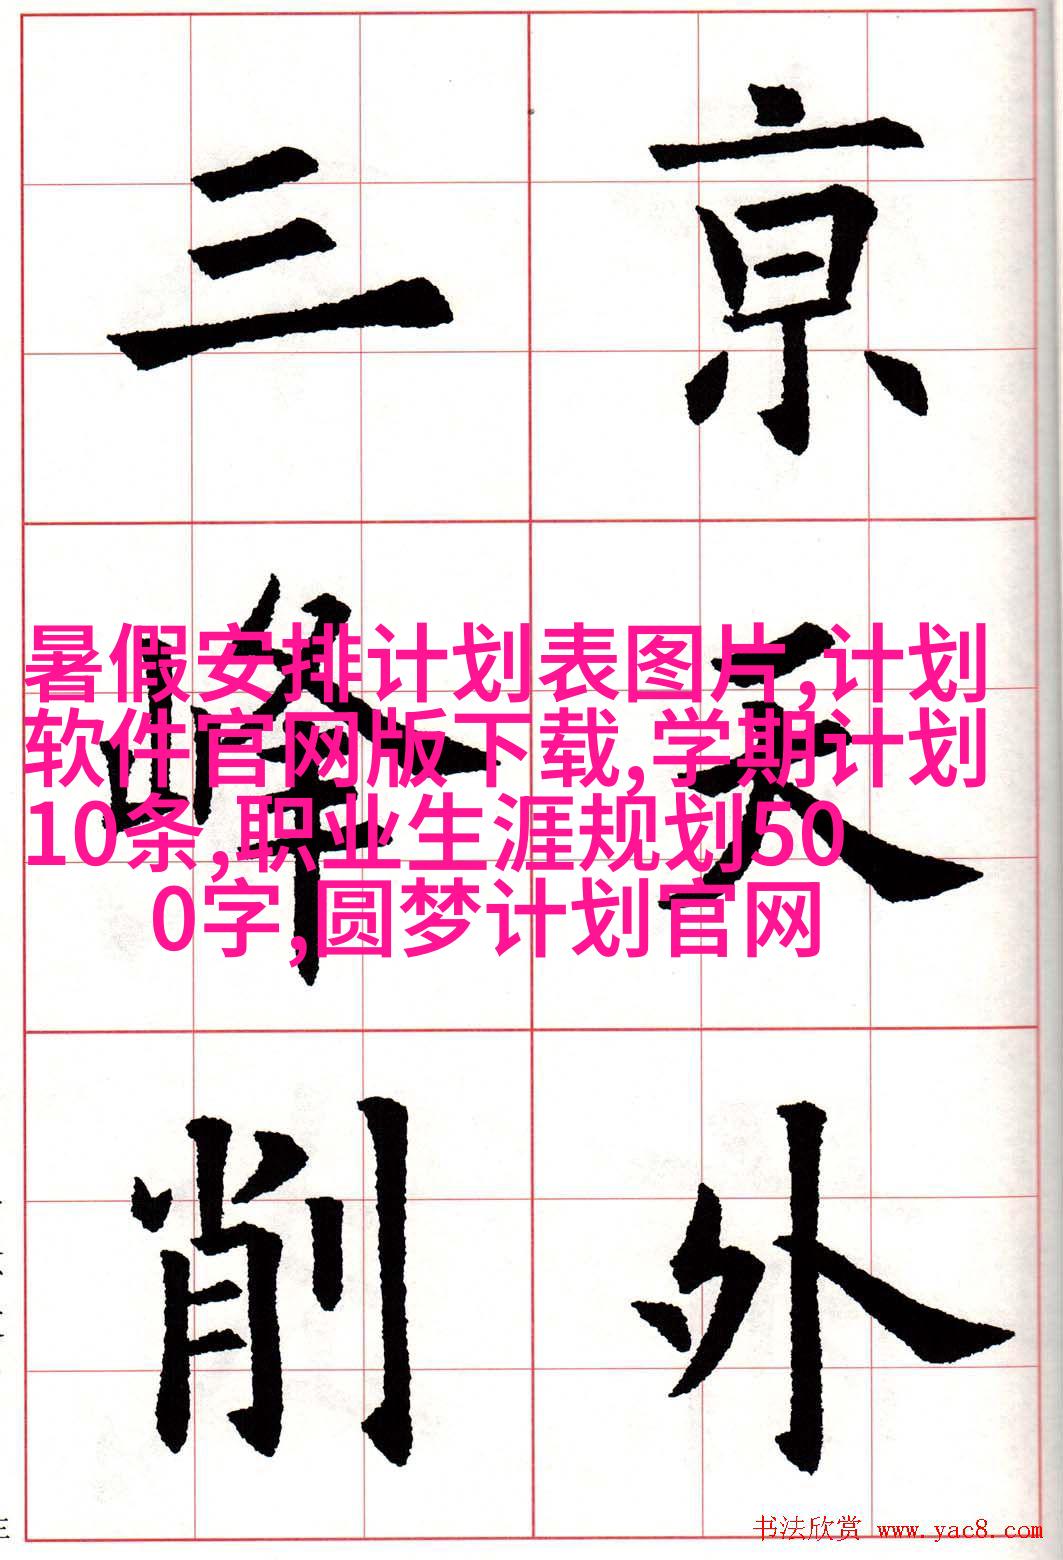 亰天外
三峰削
暑假安排计划表图片,计划
软件官网版下载,学期计划
10条,职业生涯规划50
0字,圆梦计划官网
书法欣赏 www.yac8.com